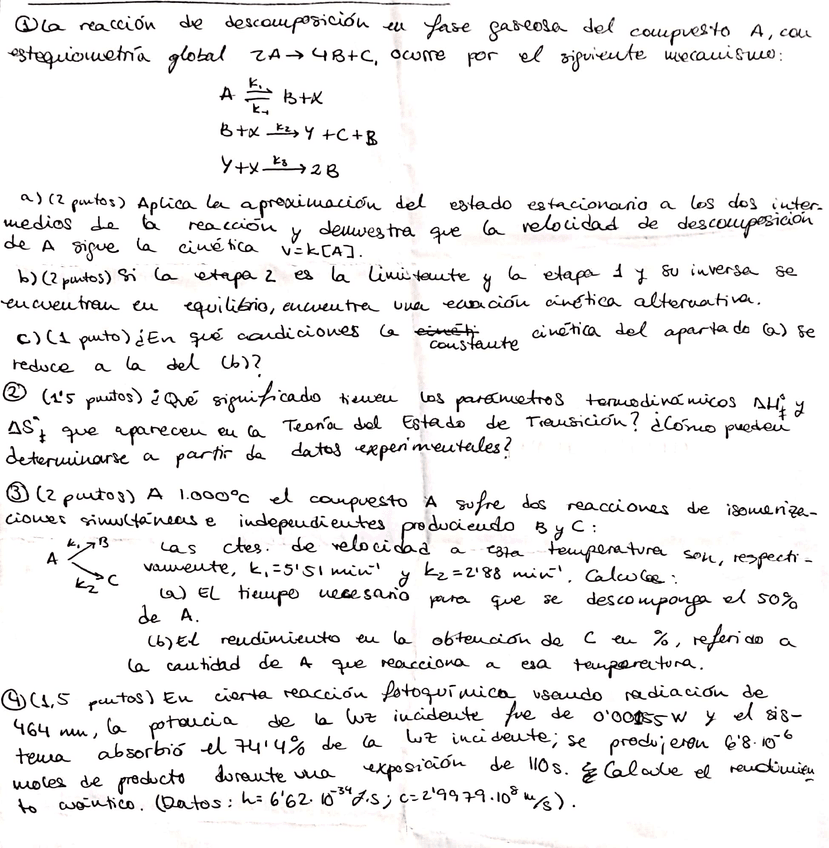 ① La reacción de descomposición en fase gaseosa del compuesto A, con
estequiometría global 2A → 4B+C, ocurre por el siguiente mecanismo:
A ⇌ B+X k₁ k₋₁
B+X —k₂→ Y + C + B
Y+X —k₃→ 2B
a) (2 puntos) Aplica la aproximación del estado estacionario a los dos inter-
medios de la reacción y demuestra que la velocidad de descomposición
de A sigue la cinética v=k[A].
b) (2 puntos) Si la etapa 2 es la limitante y la etapa 1 y su inversa se
encuentran en equilibrio, encuentra una ecuación cinética alternativa.
c) (1 punto) ¿En qué condiciones la constante cinética del apartado (a) se
reduce a la del (b)?
② (1'5 puntos) ¿Qué significado tienen los parámetros termodinámicos ΔH‡° y
ΔS‡° que aparecen en la Teoría del Estado de Transición? ¿Cómo pueden
determinarse a partir de datos experimentales?
③ (2 puntos) A 1.000°C el compuesto A sufre dos reacciones de isomeriza-
ciones simultáneas e independientes produciendo B y C:
A k₁ B k₂ C
Las ctes. de velocidad a esta temperatura son, respecti-
vamente, k₁=5'51 min⁻¹ y k₂=2'88 min⁻¹. Calcule:
(a) El tiempo necesario para que se descomponga el 50%
de A.
(b) El rendimiento en la obtención de C en %, referido a
la cantidad de A que reacciona a esa temperatura.
④ (1,5 puntos) En cierta reacción fotoquímica usando radiación de
464 nm, la potencia de la luz incidente fue de 0'00155 W y el sis-
tema absorbió el 74'4% de la luz incidente; se produjeron 6'8·10⁻⁶
moles de producto durante una exposición de 110s. Calcule el rendimien
to cuántico. (Datos: h= 6'62·10⁻³⁴ J.s; c=2'9979·10⁸ m/s).